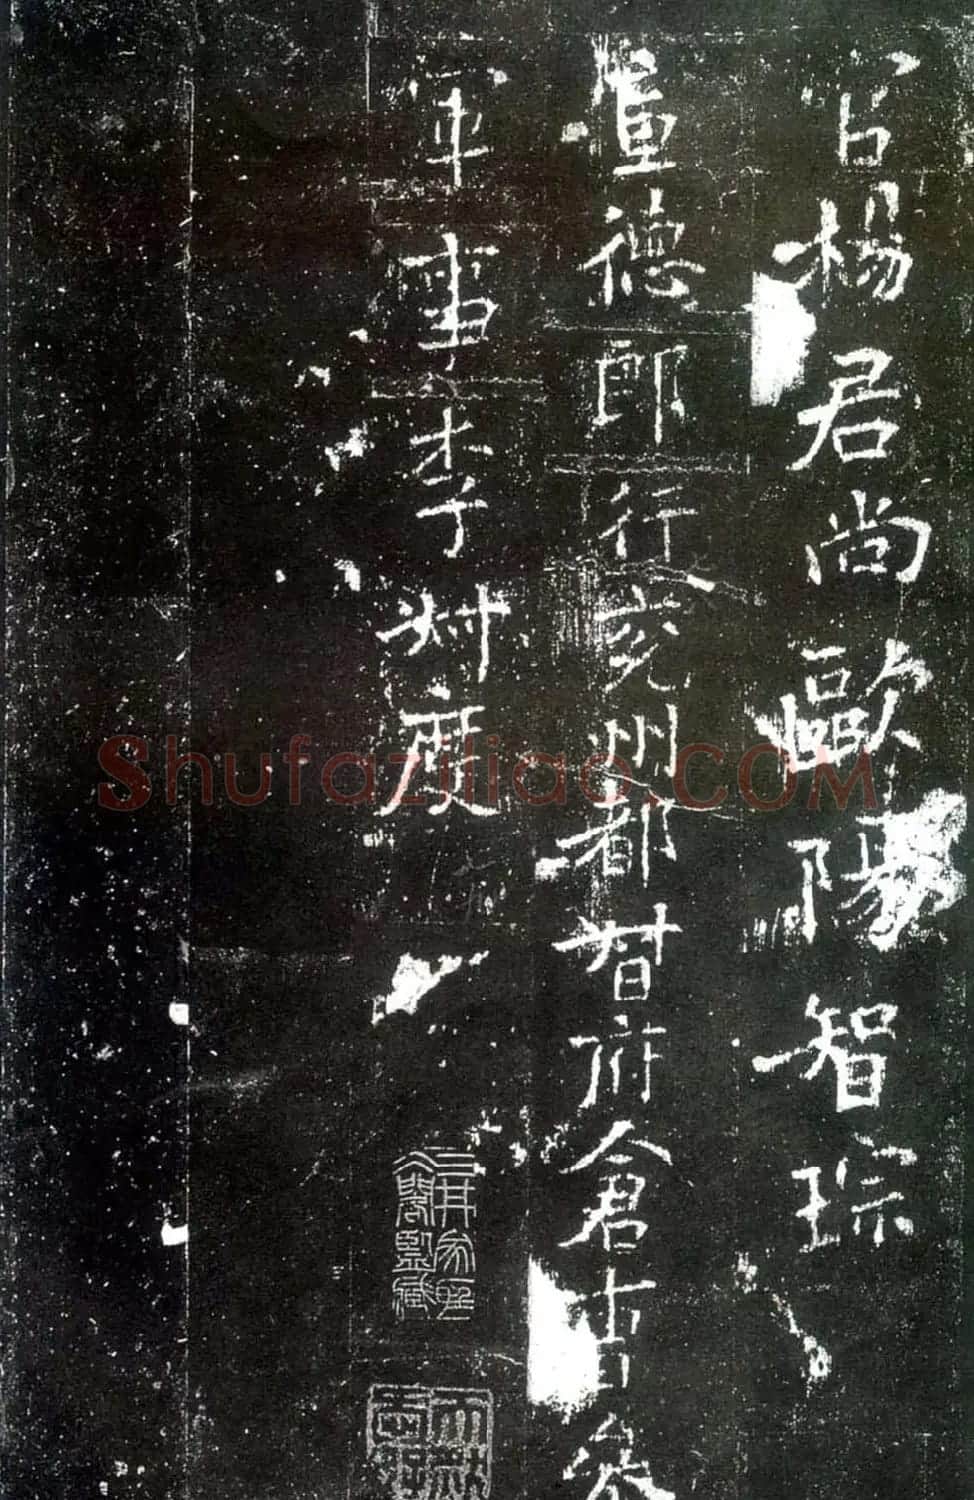 官楊君尚歐陽智琮
宣德郎行兗州都督府倉曹參
軍事李叔度
Shufaziliao.COM